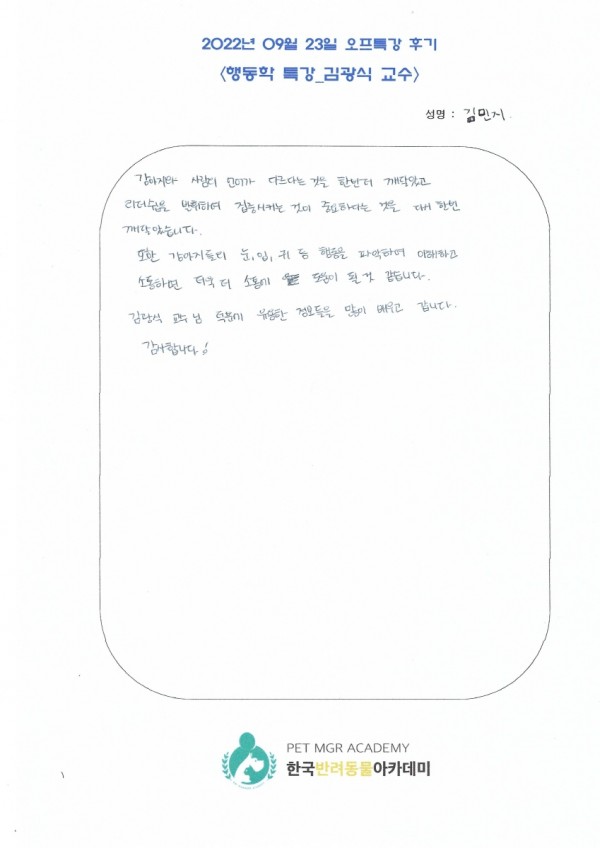 2022년 09월 23일 오프특강 후기
<행동학 특강_김광식 교수>
성명 : 김민지
강아지와 사람의 언어가 다르다는 것을 한번더 깨닫았고
리더쉽을 발휘하여 집중시키는 것이 중요하다는 것을 다시 한번
깨닫았습니다.
또한 강아지들의 눈, 입, 귀 등 행동을 파악하며 이해하고
소통하면 더욱 더 소통에 도움이 될 것 같습니다.
김광식 교수님 덕분에 유용한 정보들을 많이 배우고 갑니다.
감사합니다!
PET MGR ACADEMY
한국반려동물아카데미